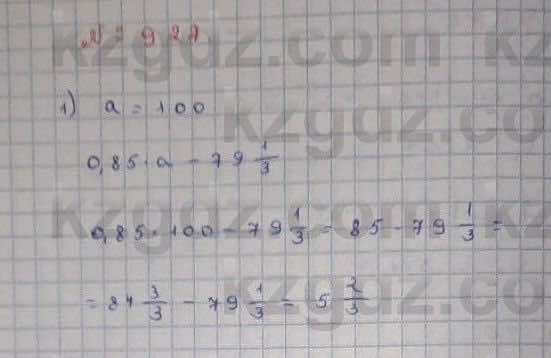 № 927
1) a = 100
0,85 · a - 79 1/3
0,85 · 100 - 79 1/3 = 85 - 79 1/3 =
= 84 3/3 - 79 1/3 = 5 2/3
kzgdz.com kz
kzgdz.co
kzgdz.com kz
kzgdz.co